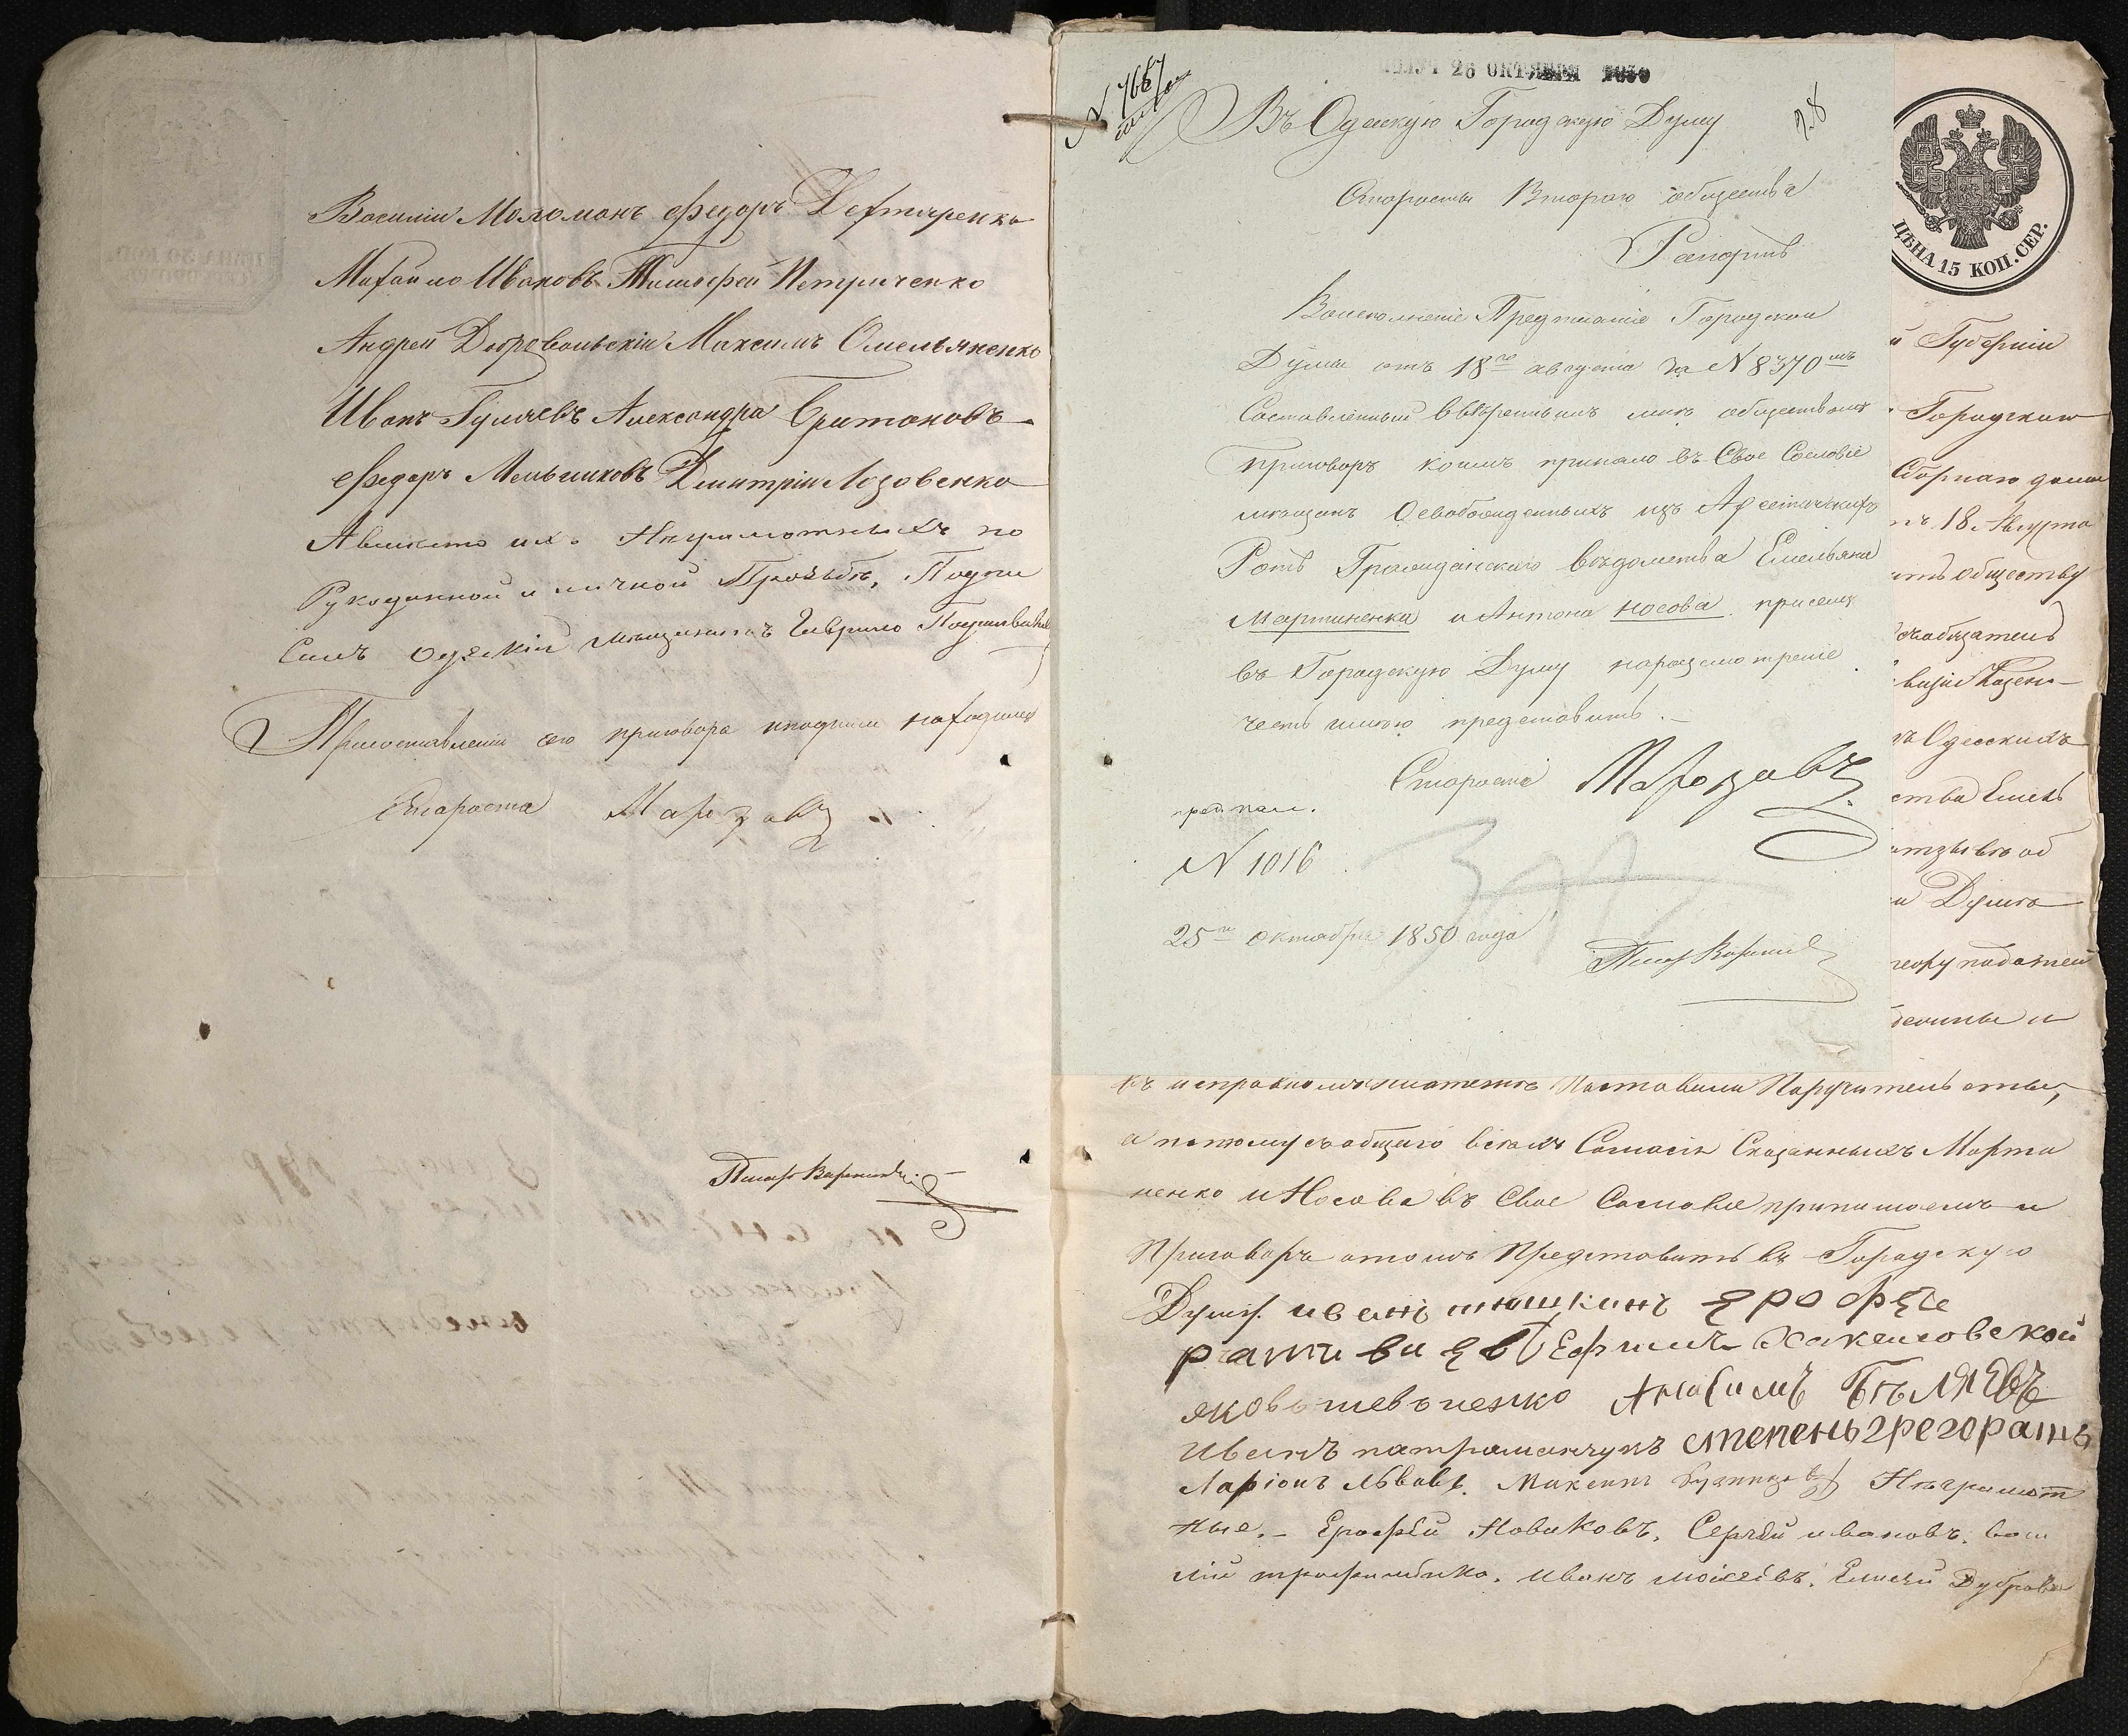 Василіи Моломанъ Федоръ Дехтяренко
Михаило Ивановъ Тимофеи Петриченко
Андреи Добровольскіи Максимъ Омельяненко
Иванъ Гулчевъ Александра Британовъ
Федоръ Мельниковъ Димитріи Лозовенко
Авместо ихъ Неграмотныхъ по
Рукоданной и личной Прозьбѣ, Подпи
Салъ Одескій мещанинъ Гаврило
Присоставленіи сего приговора иподписи находился
Староста Марозавъ
Писарь
№ 7667
26 ОКТЯБРЯ 1850
28
Въ Одескую Городскую Думу
Старосты Втораго общества
Рапортъ
Воисполненіе Предписаніе Городской
Думы отъ 18го августа за № 8370мъ
Составленный ввѣреннымъ мнѣ обществомъ
Приговоръ коимъ принало въ Свое Сословіе
мѣщанъ Освобожденныхъ изъ Арестанскихъ
Ротъ Гражданскаго вѣдомства Емельяна
Мартиненка и Антона Носова присемъ
въ Городскую Думу наразсмотреніе
честь имѣю представить.
Староста Марозавъ
№ 1016
25го октября 1850 года
Писарь
ЦѢНА 15 КОП. СЕР.
Губерніи
Городскаго
Сборнаго дома
18 Августа
обществу
Казен
Одесскихъ
ства Емель
отзывъ об
Думы
податей
къ исправномъ платежѣ Поставили Поручительство,
а потому собщаго всѣхъ Согласія Сказанныхъ Марти
ненко и Носова въ Свое Сословіе принимаемъ и
Приговоръ отомъ Представить въ Городскую
Думу. иванъ тюшкинъ ерофѣе
Ефимъ Хаксиовской
яковъ шевъченко Анисимъ Бѣляевъ
Иванъ патраманчукъ степенъ грегорашъ
Ларіонъ Львовъ. Максимъ Неграмот
ные. – Ерофѣй Новиковъ, Сергѣй ивановъ. васи
лій трофименко. иванъ моісеевъ. Елисѣй Дуброва